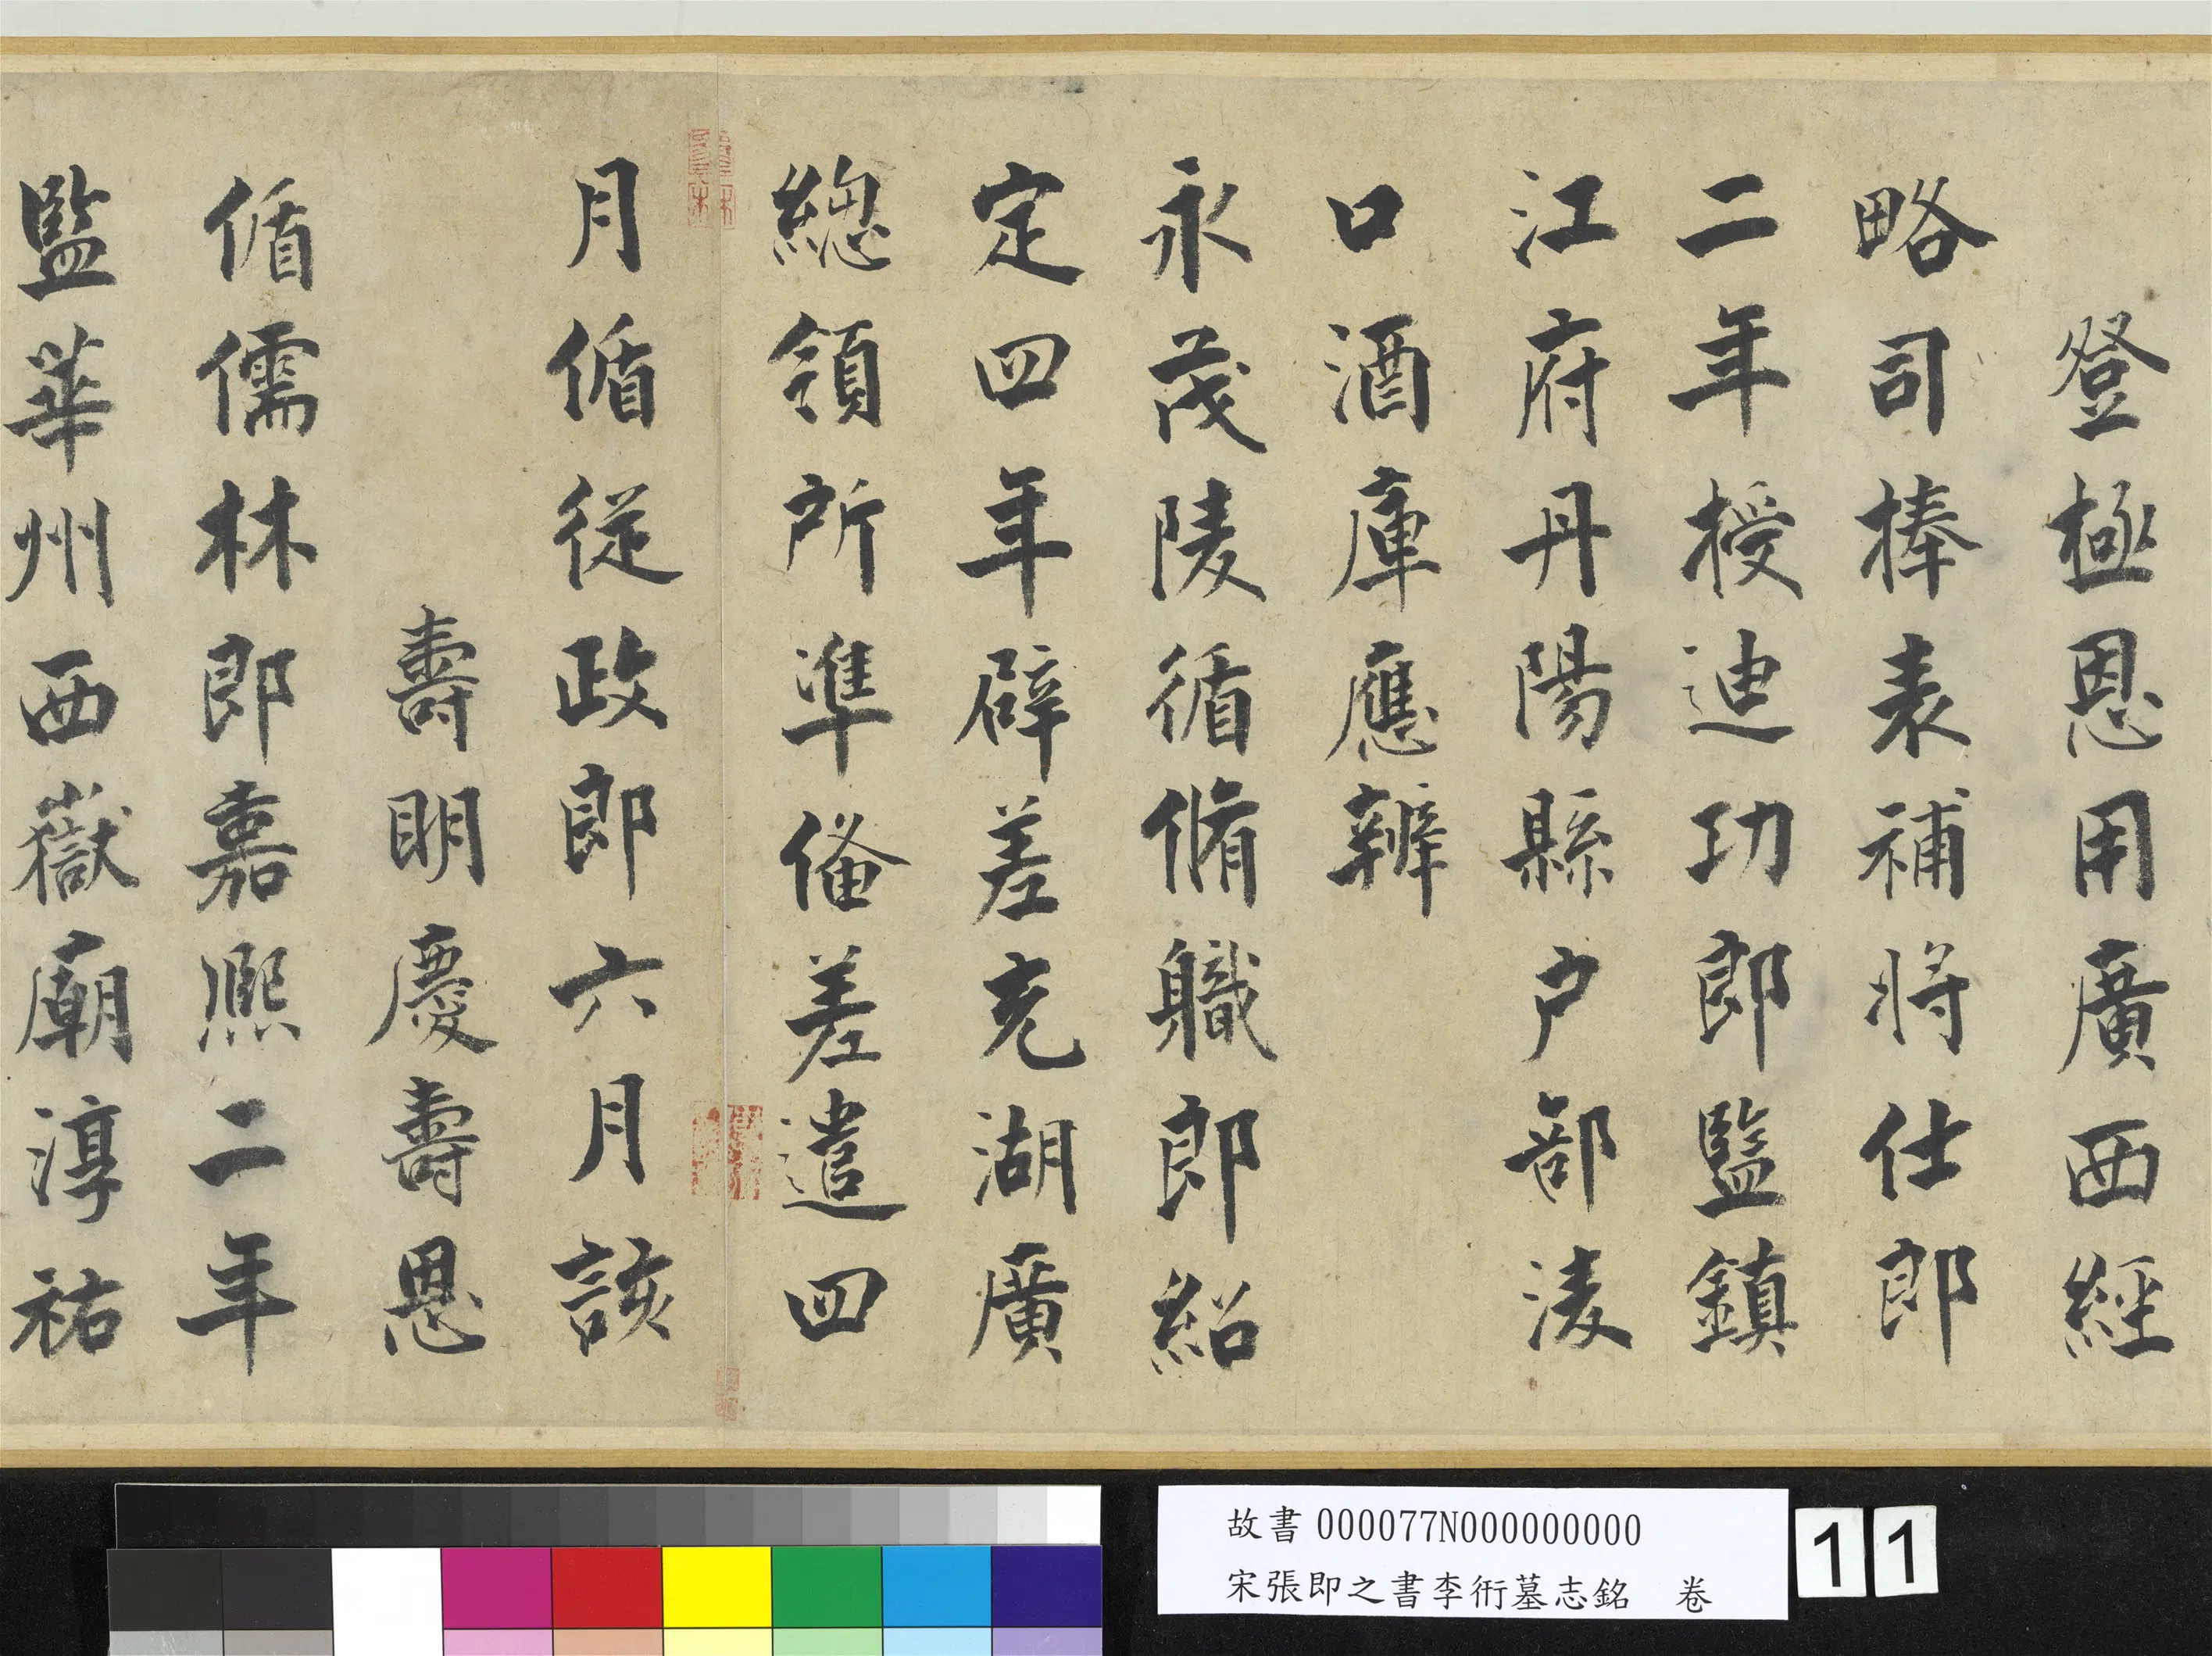 登極恩用廣西經
略司捧表補將仕郎
二年授迪功郎監鎮
江府丹陽縣户部淩
口酒庫應辦
永茂陵循脩職郎紹
定四年辟差充湖廣
總領所準俻差遣四
月循從政郎六月該
壽明慶壽恩
循儒林郎嘉熙二年
監華州西嶽廟淳祐
故書000077N000000000
宋張即之書李衎墓志銘 卷
11